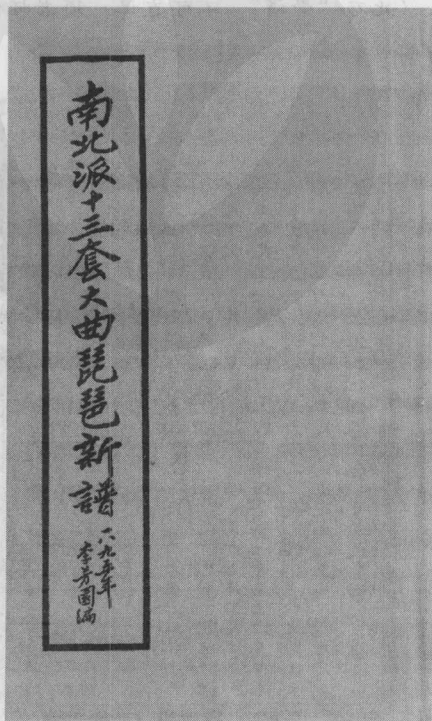 南北派十三套大曲琵琶新譜
一八九五年
李芳園編